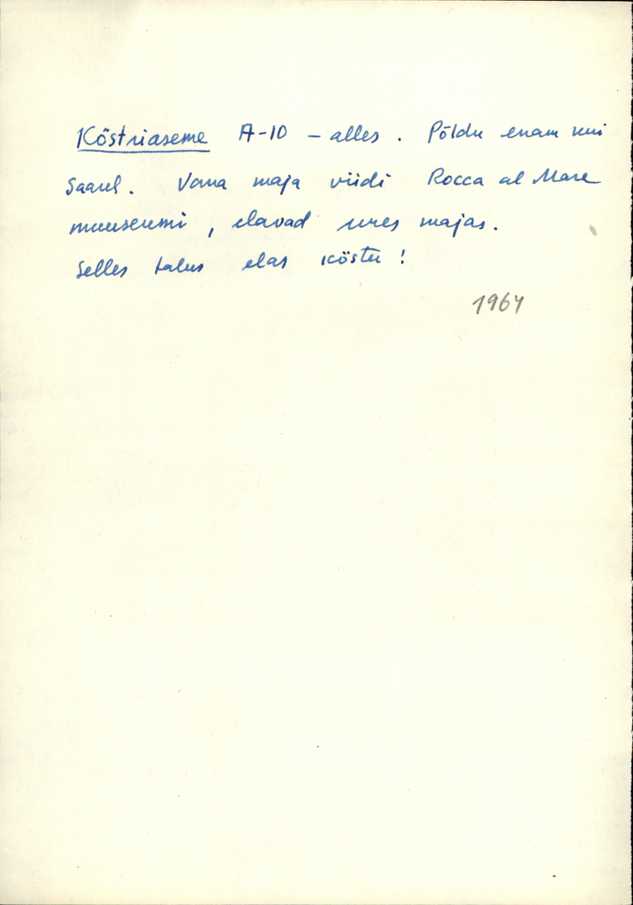 Köstriaseme A-10 - alles. Põldu enam kui
Saarel. Vana maja viidi Rocca al Mare
muuseumi, elavad uues majas.
Selles talus elas köster!
1964